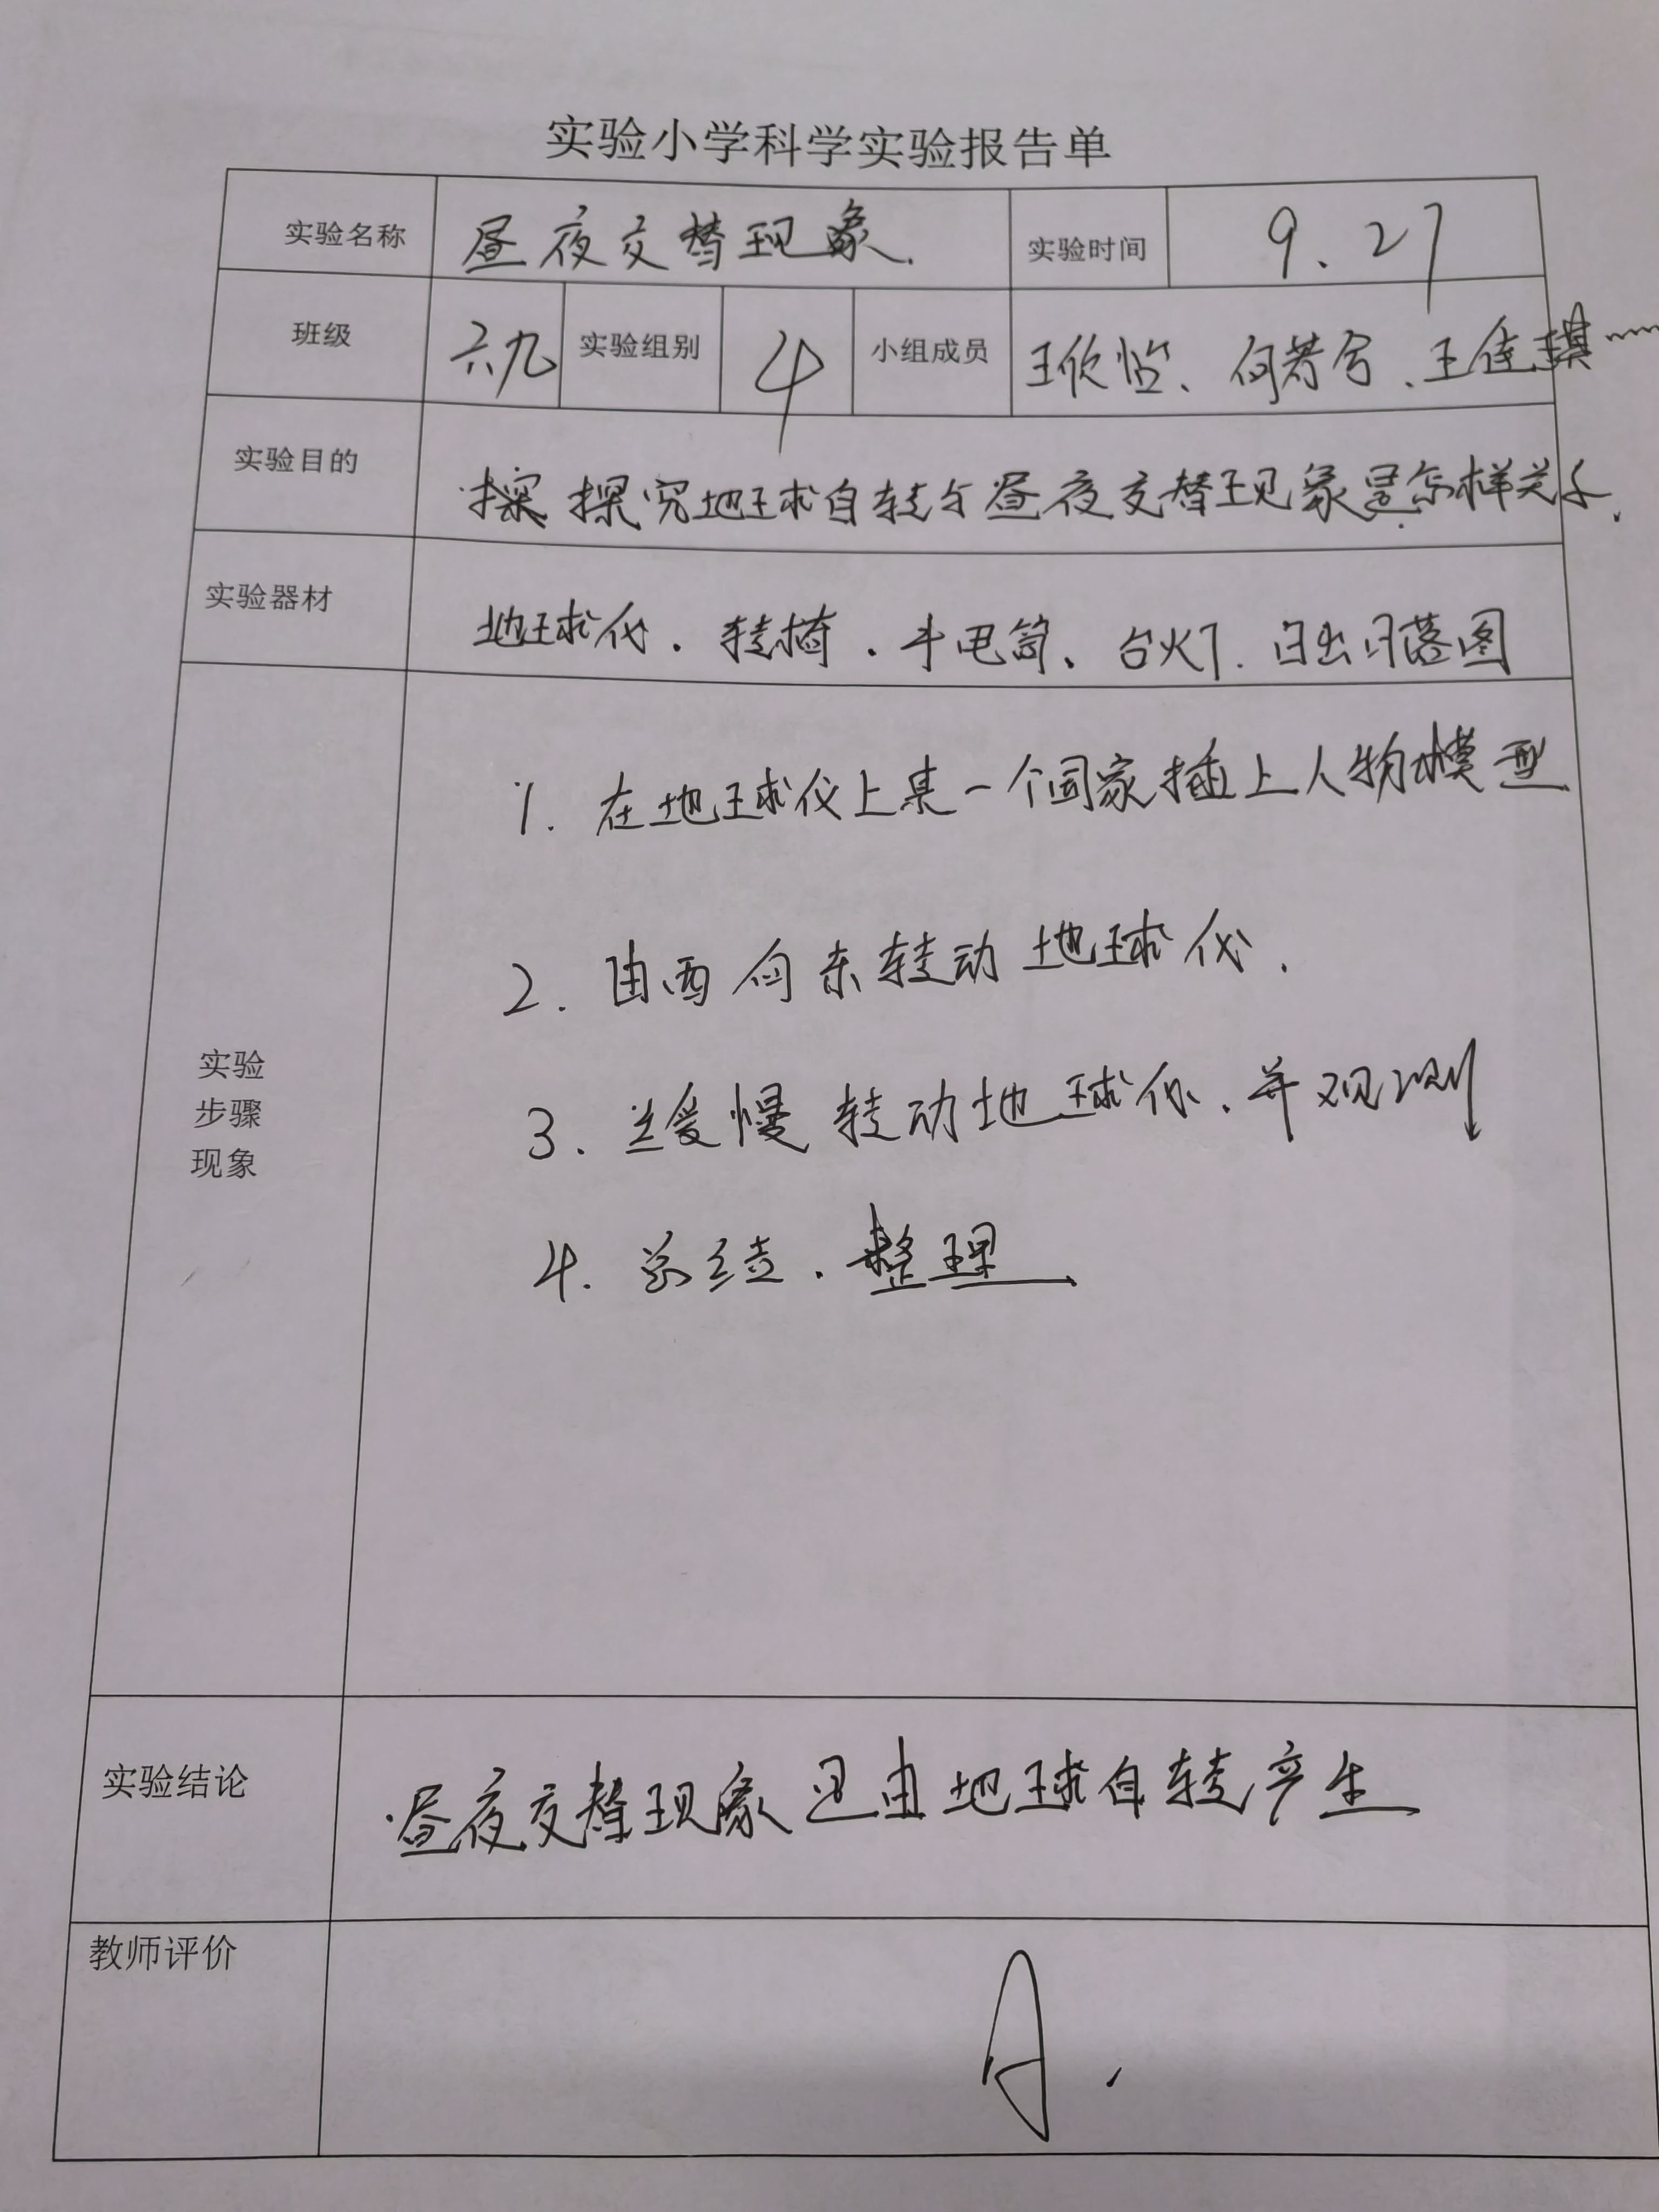 实验小学科学实验报告单
实验名称 昼夜交替现象. 实验时间 9.27
班级 六九 实验组别 4 小组成员 王欣怡、何若兮、王佳琪……
实验目的 探究地球自转与昼夜交替现象是怎样关系.
实验器材 地球仪、转椅、手电筒、台灯、日出日落图
实验
步骤
现象
1. 在地球仪上某一个国家插上人物模型
2. 由西向东转动地球仪.
3. 缓慢转动地球仪、并观测
4. 总结、整理
实验结论 昼夜交替现象是由地球自转产生
教师评价 A.